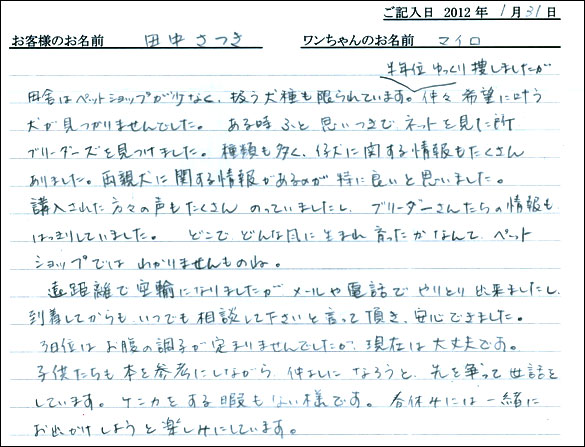 ご記入日 2012年 1月31日
お客様のお名前 田中さつき ワンちゃんのお名前 マイロ
半年位ゆっくり捜しましたが
田舎はペットショップが少なく、扱う犬種も限られています。仲々希望に叶う
犬が見つかりませんでした。 ある時ふと思いつきでネットを見た所
ブリーダーズを見つけました。種類も多く、仔犬に関する情報もたくさん
ありました。両親犬に関する情報があるのが特に良いと思いました。
講入された方々の声もたくさんのっていましたし、ブリーダーさんたちの情報も
はっきりしていました。 どこで、どんな風に生まれ育ったかなんて、ペット
ショップではわかりませんものね。
遠距離で空輸になりましたがメールや電話でやりとり出来ましたし、
到着してからも、いつでも相談して下さいと言って頂き、安心できました。
3日位はお腹の調子が定まりませんでしたが、現在は大丈夫です。
子供たちも本を参考にしながら、仲よしになろうと、先を争って世話を
しています。ケンカをする暇もない様です。春休みには一緒に
お出かけしようと楽しみにしています。